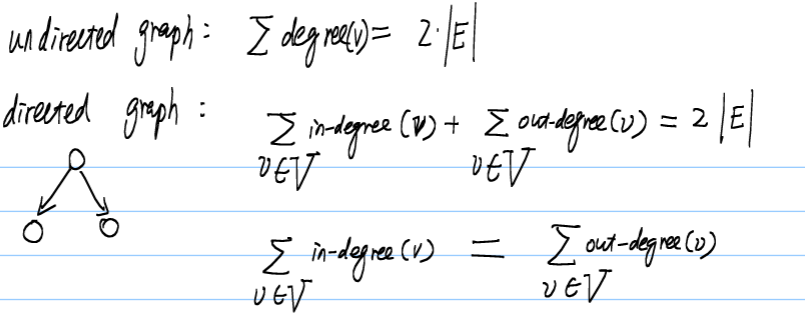 undirected graph: ∑ degree(v) = 2·|E|
directed graph: ∑ in-degree (v) + ∑ out-degree(v) = 2 |E|
v∈V v∈V
∑ in-degree (v) = ∑ out-degree(v)
v∈V v∈V